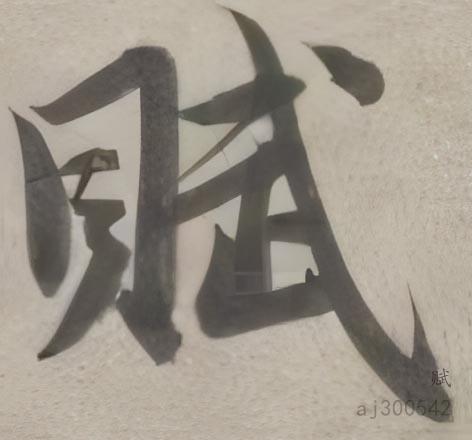 赋
赋
aj300542